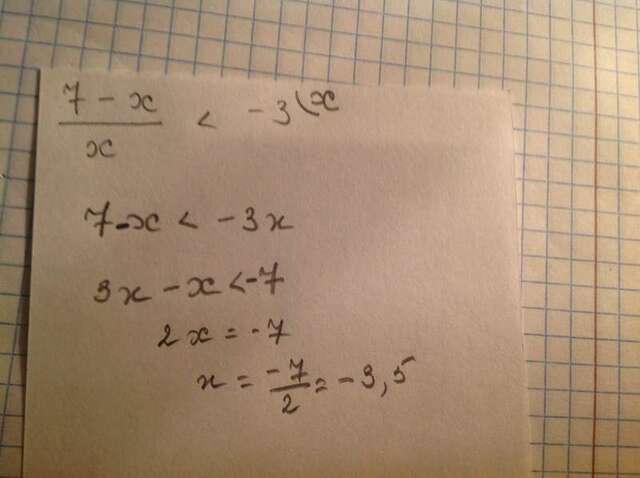 7 - x / x < -3 (x
7 - x < -3x
3x - x < -7
2x = -7
x = -7/2 = -3,5